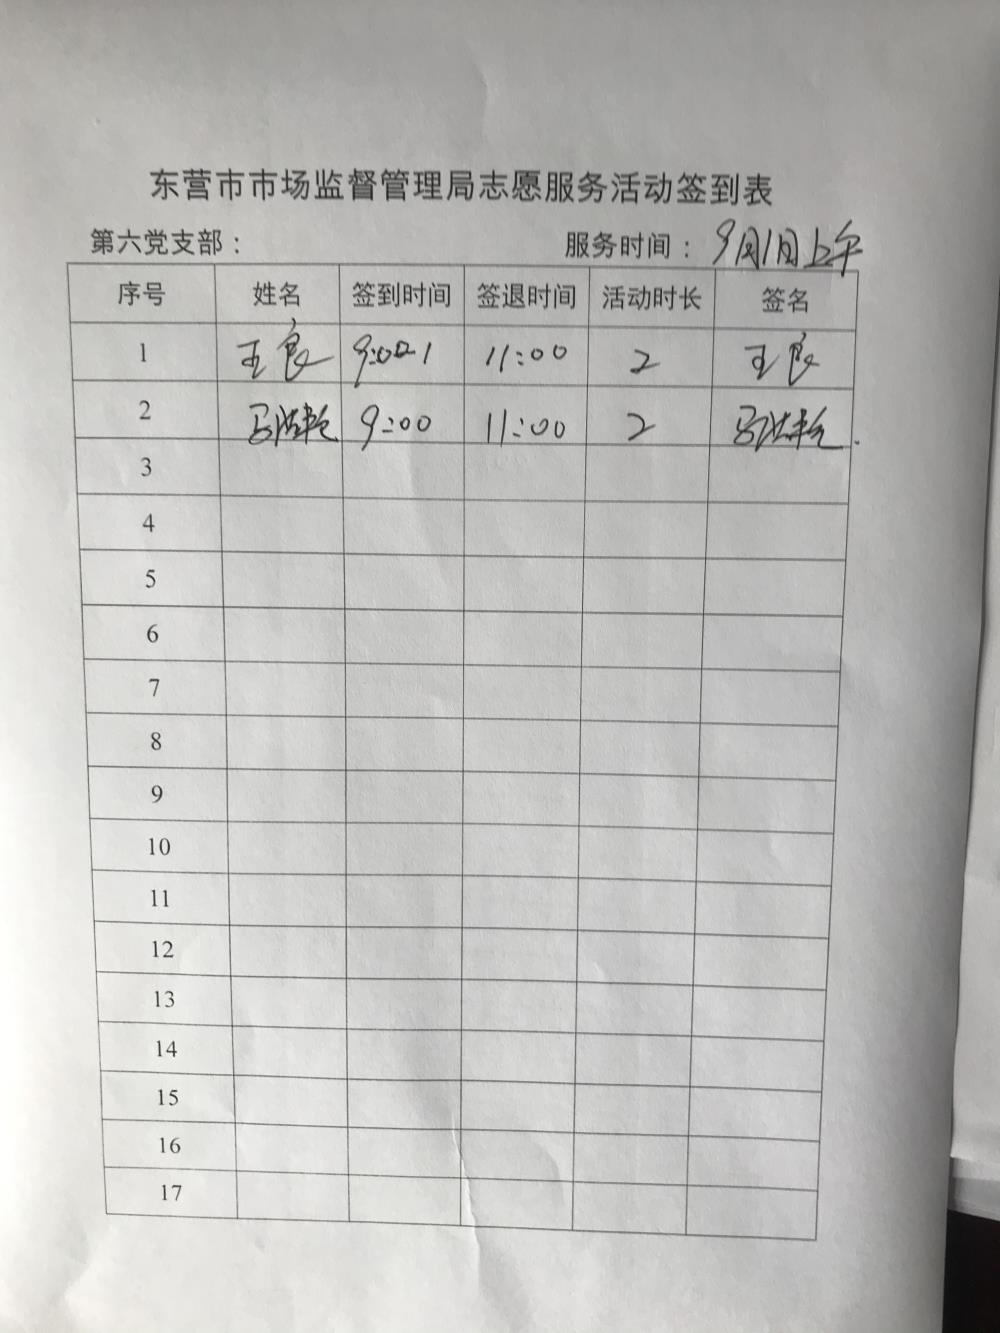 东营市市场监督管理局志愿服务活动签到表
第六党支部： 服务时间： 9月1日上午
序号 姓名 签到时间 签退时间 活动时长 签名
1 王良 9:00 11:00 2 王良
2 9:00 11:00 2
3
4
5
6
7
8
9
10
11
12
13
14
15
16
17